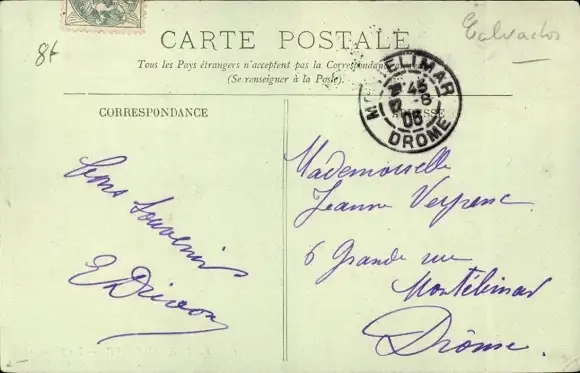 8f
Calvados
CARTE POSTALE
Tous les Pays étrangers n'acceptent pas la Correspondance
(Se renseigner à la Poste).
MONTELIMAR
45
8
06
DROME
CORRESPONDANCE
ADRESSE
Bons Souvenirs
E
Mademoiselle
Jeanne
6 Grande rue
Montélimar
Drôme.